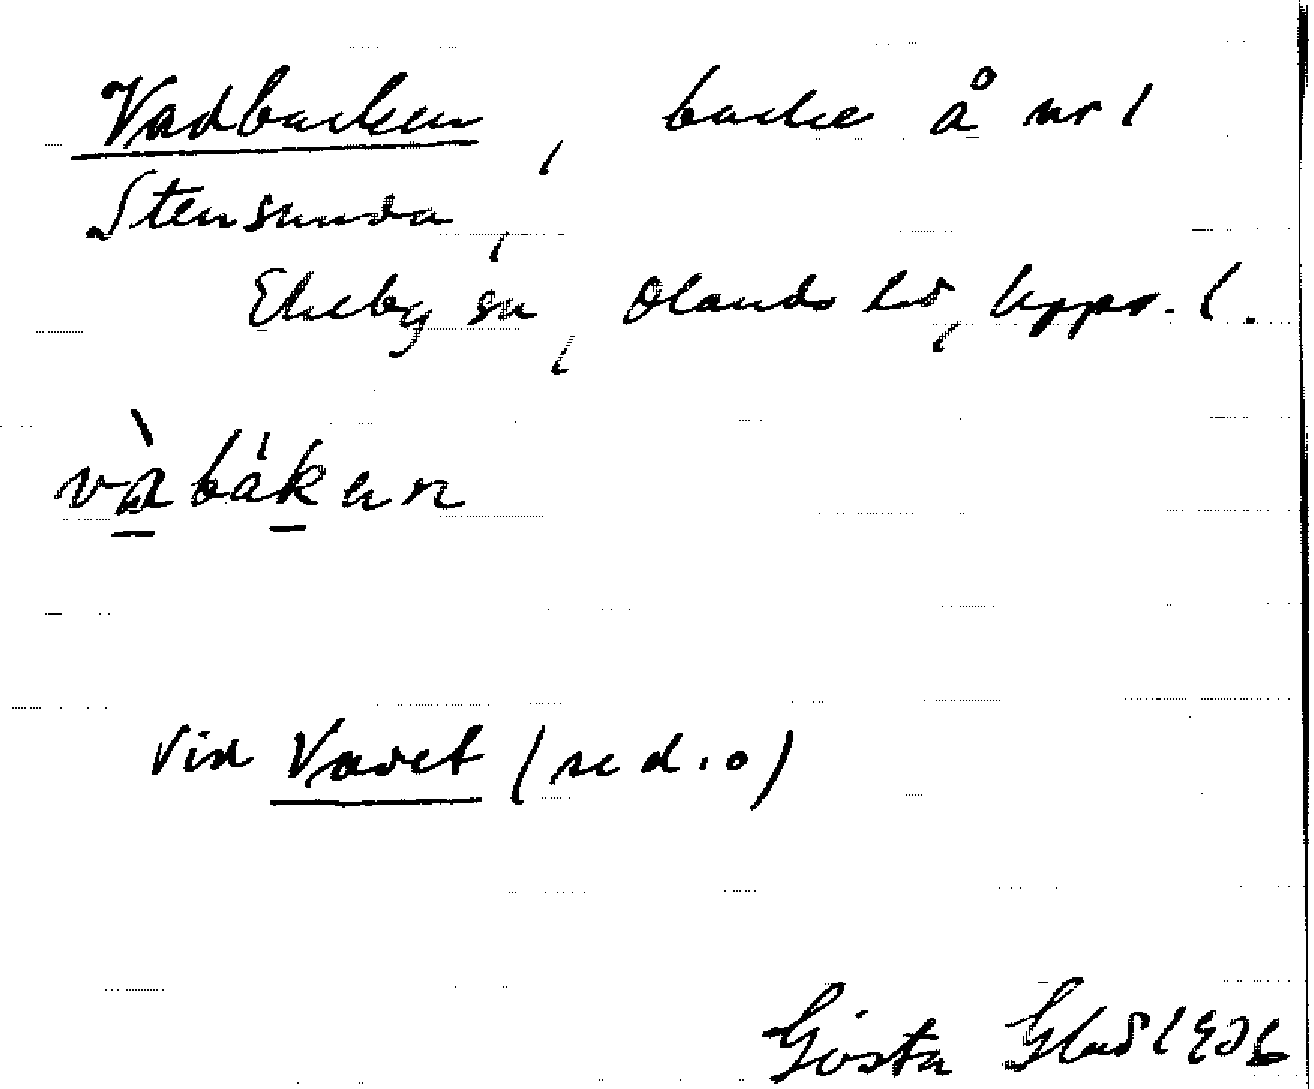 Vadbacken, backe å nr 1
Stensunda,
Ekeby sn, Olands hd, Upps. l.
vàbákan
vid Vadet (se d. o)
Gösta Glad 1936